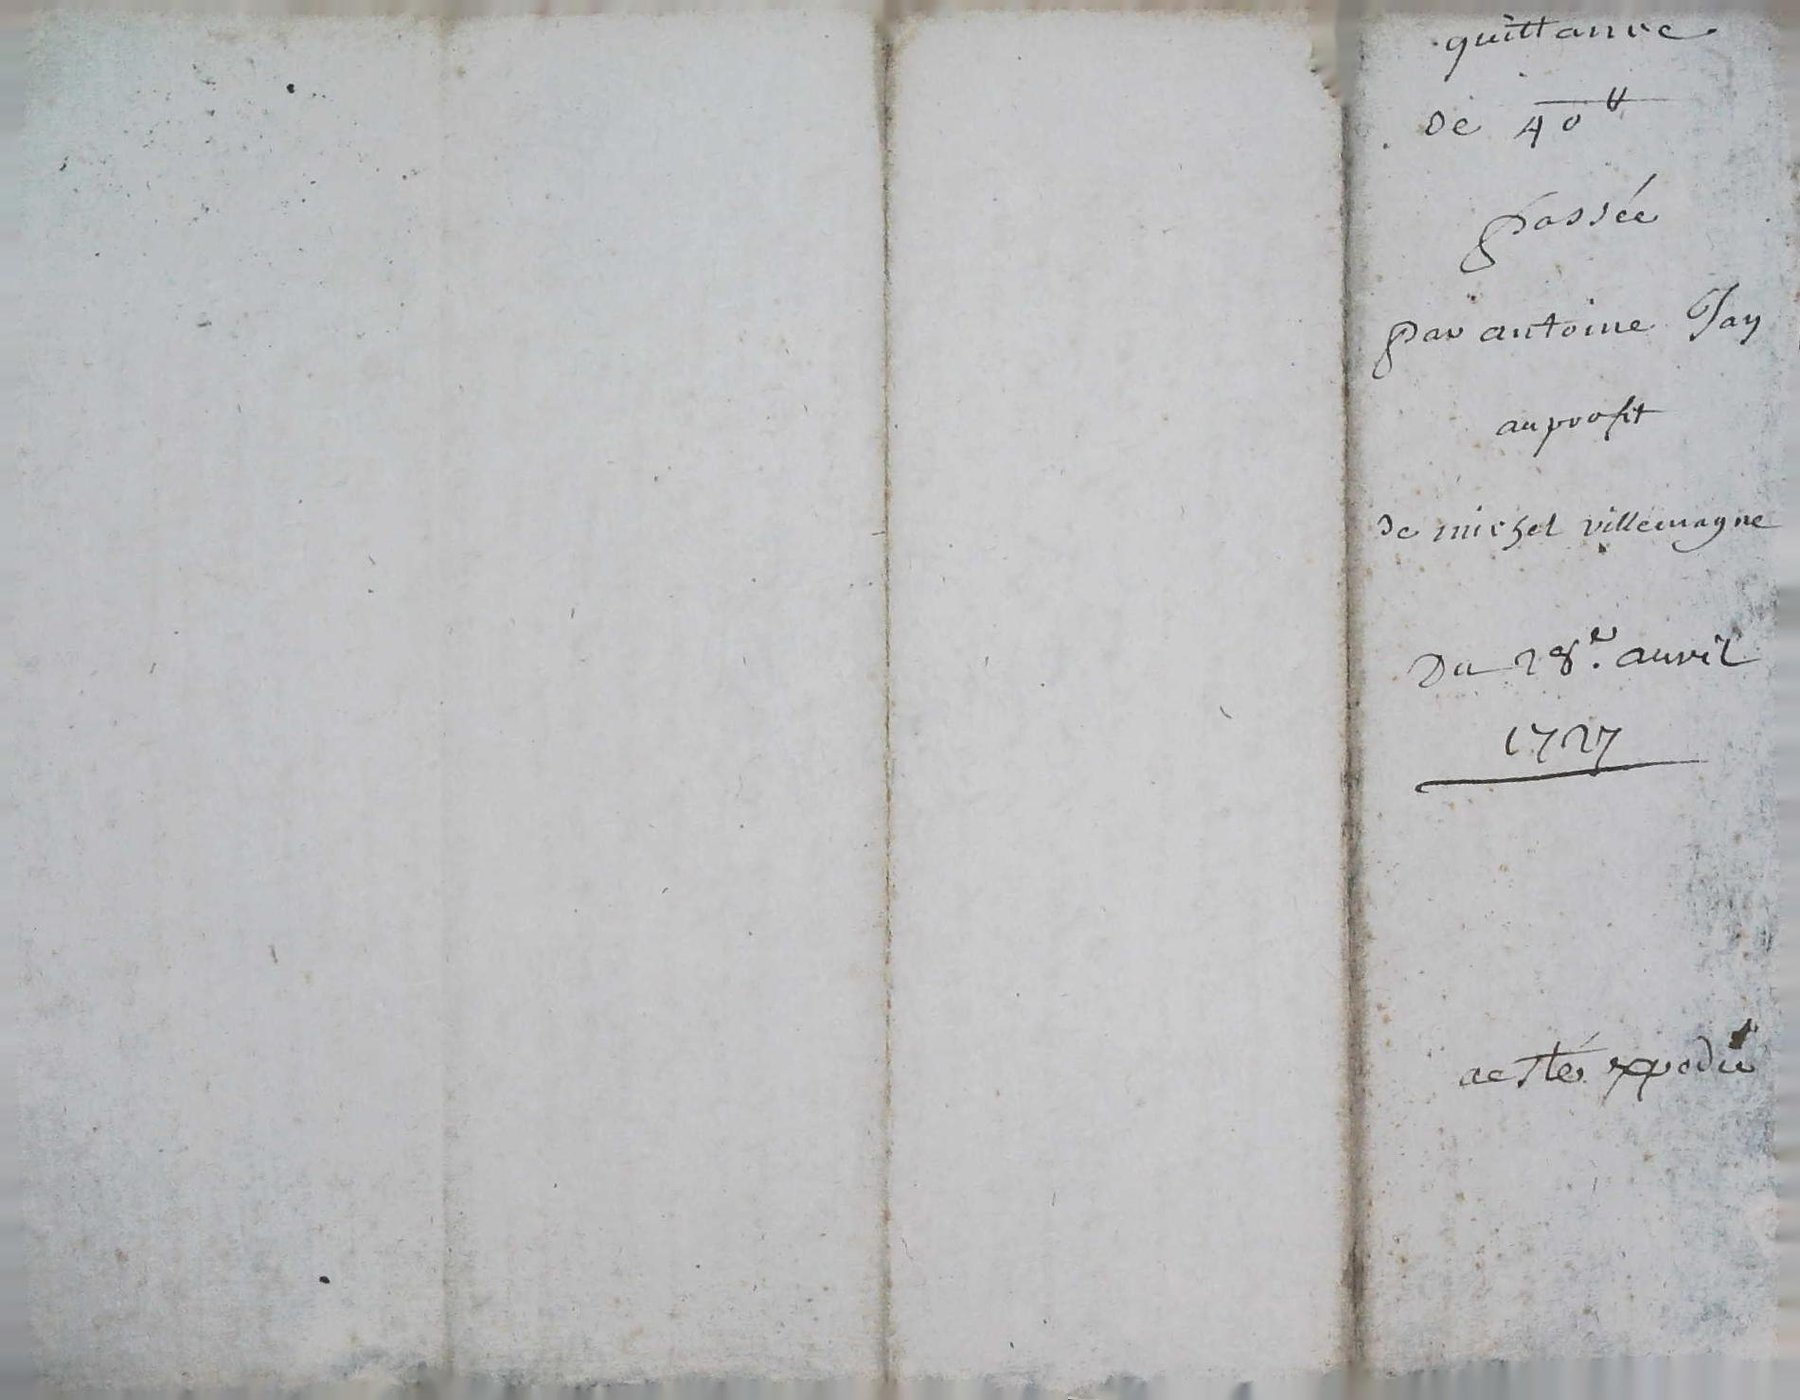 quittance
de 40 ₶
passée
par antoine Jay
au profit
de michel villemagne
Du 28e. auril
1727
a esté expedié